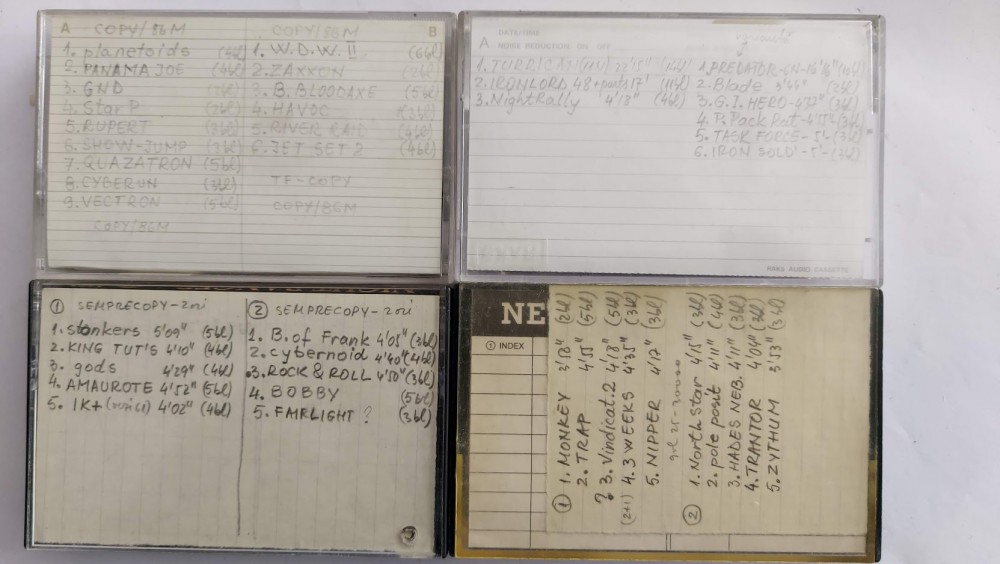 A COPY/86M
1. planetoids (4bl)
2. PANAMA JOE (4bl)
3. GND (2bl)
4. Star P. (2bl)
5. RUPERT (3bl)
6. SHOW-JUMP (3bl)
7. QUAZATRON (5bl)
8. CYBERUN (3bl)
9. VECTRON (5bl)
COPY/86M
COPY/86M B
1. W.D.W. II. (6bl)
2. ZAXXON (2bl)
3. B. BLOODAXE (5bl)
4. HAVOC (3bl)
5. RIVER RAID (4bl)
6. JET SET 2 (4bl)
TF-COPY
COPY/86M
DATE/TIME
A NOISE REDUCTION ON OFF
2. IRONLORD 48 + parts 17' (11bl)
3. NightRally 4'18" (4bl)
2. Blade 3'44" (2bl)
3. G.I. HERO- (3bl)
4. P. Pack Rat- (3bl)
5. TASK FORCE- 5'- (3bl)
6. IRON SOLD' -5'- (3bl)
RAKS AUDIO CASSETTE
① SEMPRECOPY-2ori
1. stonkers 5'09" (5bl)
2. KING TUT'S 4'10" (4bl)
3. gods 4'29" (4bl)
4. AMAUROTE 4'52" (5bl)
5. IK+ 4'02" (4bl)
② SEMPRECOPY-2ori
1. B. of Frank 4'05" (3bl)
2. cybernoid 4'40" (4bl)
3. ROCK & ROLL 4'50" (3bl)
4. BOBBY (5bl)
5. FAIRLIGHT ? (3bl)
NE
① INDEX
① 1. MONKEY 3'58" (2bl)
2. TRAP 4'55" (5bl)
? 3. Vindicat. 2 4'18" (5bl)
(2+1) 4. 3 WEEKS 4'35" (3bl)
5. NIPPER 4'17" (3bl)
② 1. North Star 4'15" (3bl)
2. pole posit 4'11" (4bl)
3. HADES NEB. 4'11" (3bl)
4. TRANTOR 4'04" (3bl)
5. ZYTHUM 3'53" (3bl)